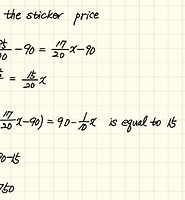 the sticker price
-90 = 17/20 x-90
= 15/20 x
17/20 x-90) = 90-1/10 x is equal to 15
90-15
750